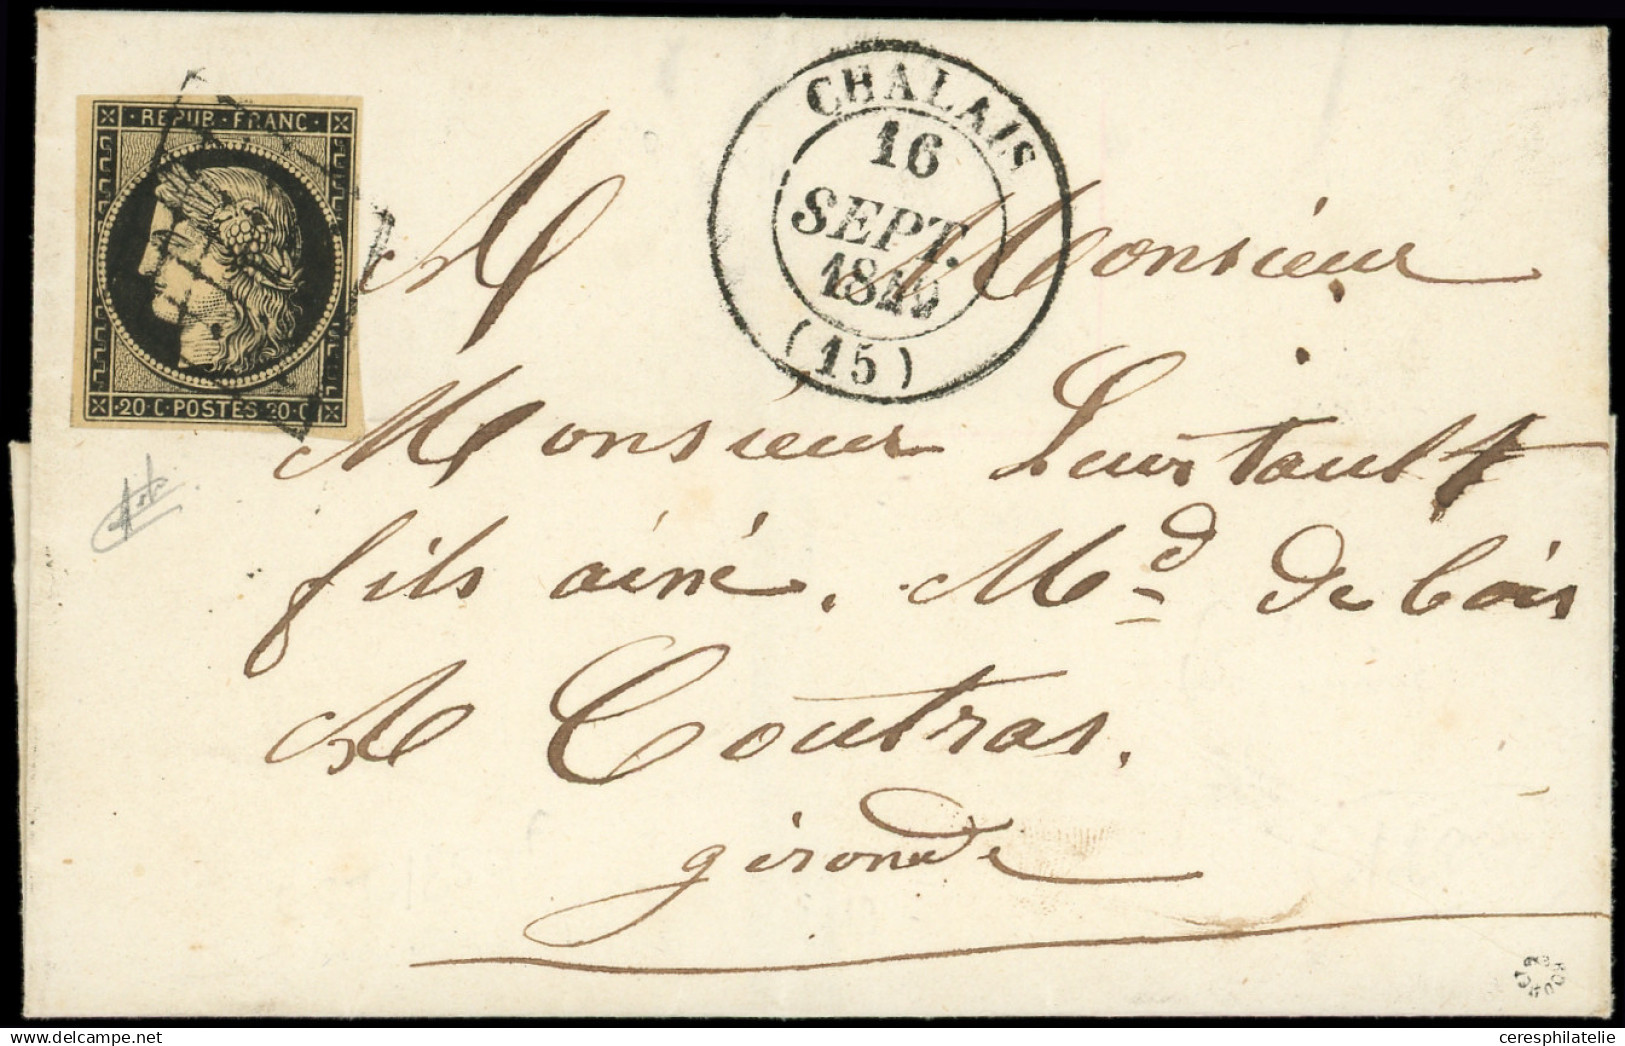 · REPUB · FRANC ·
· 20 · C · POSTES · 20 · C ·
CHALAIS
16
SEPT.
1849
(15)
A Monsieur
Monsieur
fils ainé. M.d de bois
A Coutras.
gironde
ROUMET
ceresphilatelie